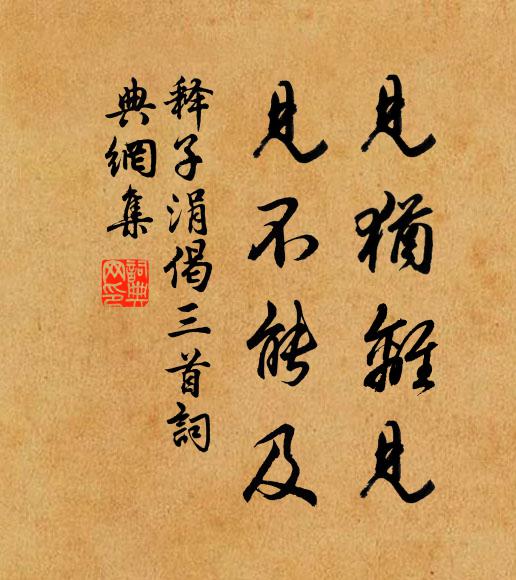 見猶離見
見不能及
释子涓偈三首詞
典網集
詞典
网印